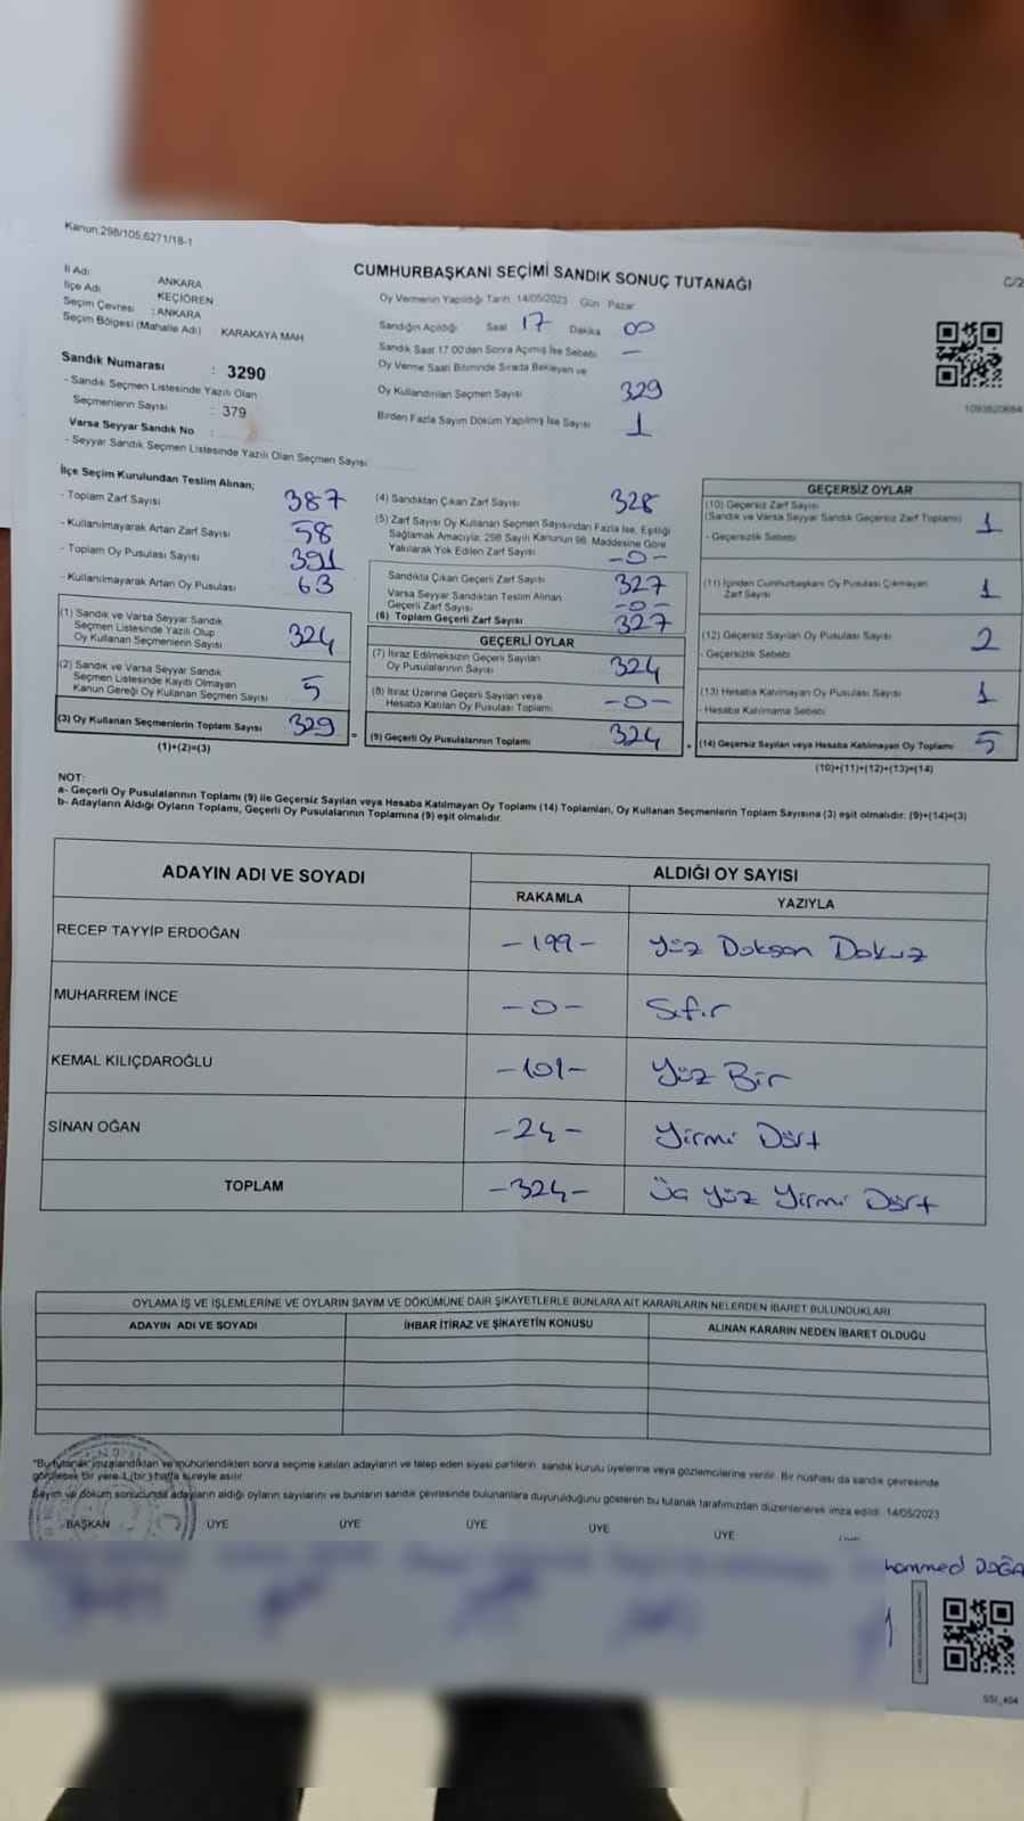 Kanun:298/105,6271/18-1
C/2
İl Adı : ANKARA
İlçe Adı KEÇİÖREN
Seçim Çevresi : ANKARA
Seçim Bölgesi (Mahalle Adı) KARAKAYA MAH
CUMHURBAŞKANI SEÇİMİ SANDIK SONUÇ TUTANAĞI
Oy Vermenin Yapıldığı Tarih 14/05/2023 Gün Pazar
Sandığın Açıldığı Saat 17 Dakika 00
Sandık Saat 17:00'den Sonra Açılmış İse Sebebi —
Oy Verme Saati Bitiminde Sırada Bekleyen ve
Oy Kullandırılan Seçmen Sayısı 329
Birden Fazla Sayım Döküm Yapılmış İse Sayısı 1
Sandık Numarası : 3290
- Sandık Seçmen Listesinde Yazılı Olan
Seçmenlerin Sayısı : 379
Varsa Seyyar Sandık No :
- Seyyar Sandık Seçmen Listesinde Yazılı Olan Seçmen Sayısı
İlçe Seçim Kurulundan Teslim Alınan;
- Toplam Zarf Sayısı 387
- Kullanılmayarak Artan Zarf Sayısı 58
- Toplam Oy Pusulası Sayısı 391
- Kullanılmayarak Artan Oy Pusulası 63
(1) Sandık ve Varsa Seyyar Sandık
Seçmen Listesinde Yazılı Olup
Oy Kullanan Seçmenlerin Sayısı 324
(2) Sandık ve Varsa Seyyar Sandık
Seçmen Listesinde Kayıtlı Olmayan
Kanun Gereği Oy Kullanan Seçmen Sayısı 5
(3) Oy Kullanan Seçmenlerin Toplam Sayısı 329
(1)+(2)=(3)
(4) Sandıktan Çıkan Zarf Sayısı 328
(5) Zarf Sayısı Oy Kullanan Seçmen Sayısından Fazla İse, Eşitliği
Sağlamak Amacıyla; 298 Sayılı Kanunun 98. Maddesine Göre
Yakılarak Yok Edilen Zarf Sayısı -0-
Sandıkta Çıkan Geçerli Zarf Sayısı 327
Varsa Seyyar Sandıktan Teslim Alınan
Geçerli Zarf Sayısı -0-
(6) Toplam Geçerli Zarf Sayısı 327
GEÇERLİ OYLAR
(7) İtiraz Edilmeksizin Geçerli Sayılan
Oy Pusulalarının Sayısı 324
(8) İtiraz Üzerine Geçerli Sayılan veya
Hesaba Katılan Oy Pusulası Toplamı -0-
= (9) Geçerli Oy Pusulalarının Toplamı 324
GEÇERSİZ OYLAR
(10) Geçersiz Zarf Sayısı
(Sandık ve Varsa Seyyar Sandık Geçersiz Zarf Toplamı) 1
- Geçersizlik Sebebi
(11) İçinden Cumhurbaşkanı Oy Pusulası Çıkmayan
Zarf Sayısı 1
(12) Geçersiz Sayılan Oy Pusulası Sayısı 2
- Geçersizlik Sebebi
(13) Hesaba Katılmayan Oy Pusulası Sayısı 1
- Hesaba Katılmama Sebebi
+ (14) Geçersiz Sayılan veya Hesaba Katılmayan Oy Toplamı 5
(10)+(11)+(12)+(13)=(14)
NOT:
a- Geçerli Oy Pusulalarının Toplamı (9) ile Geçersiz Sayılan veya Hesaba Katılmayan Oy Toplamı (14) Toplamları, Oy Kullanan Seçmenlerin Toplam Sayısına (3) eşit olmalıdır. (9)+(14)=(3)
b- Adayların Aldığı Oyların Toplamı, Geçerli Oy Pusulalarının Toplamına (9) eşit olmalıdır.
ADAYIN ADI VE SOYADI ALDIĞI OY SAYISI
RAKAMLA YAZIYLA
RECEP TAYYİP ERDOĞAN -199- Yüz Doksan Dokuz
MUHARREM İNCE -0- Sıfır
KEMAL KILIÇDAROĞLU -101- Yüz Bir
SİNAN OĞAN -24- Yirmi Dört
TOPLAM -324- Üç Yüz Yirmi Dört
OYLAMA İŞ VE İŞLEMLERİNE VE OYLARIN SAYIM VE DÖKÜMÜNE DAİR ŞİKAYETLERLE BUNLARA AİT KARARLARIN NELERDEN İBARET BULUNDUKLARI
ADAYIN ADI VE SOYADI İHBAR İTİRAZ VE ŞİKAYETİN KONUSU ALINAN KARARIN NEDEN İBARET OLDUĞU
"Bu tutanak imzalandıktan ve mühürlendikten sonra seçime katılan adayların ve talep eden siyasi partilerin, sandık kurulu üyelerine veya gözlemcilerine verilir. Bir nüshası da sandık çevresinde
görülecek bir yere 1 (bir) hafta süreyle asılır.
Sayım ve döküm sonucunda adayların aldığı oyların sayılarını ve bunların sandık çevresinde bulunanlara duyurulduğunu gösteren bu tutanak tarafımızdan düzenlenerek imza edildi. 14/05/2023
BAŞKAN ÜYE ÜYE ÜYE ÜYE ÜYE
hammed DOĞA
SSI_404